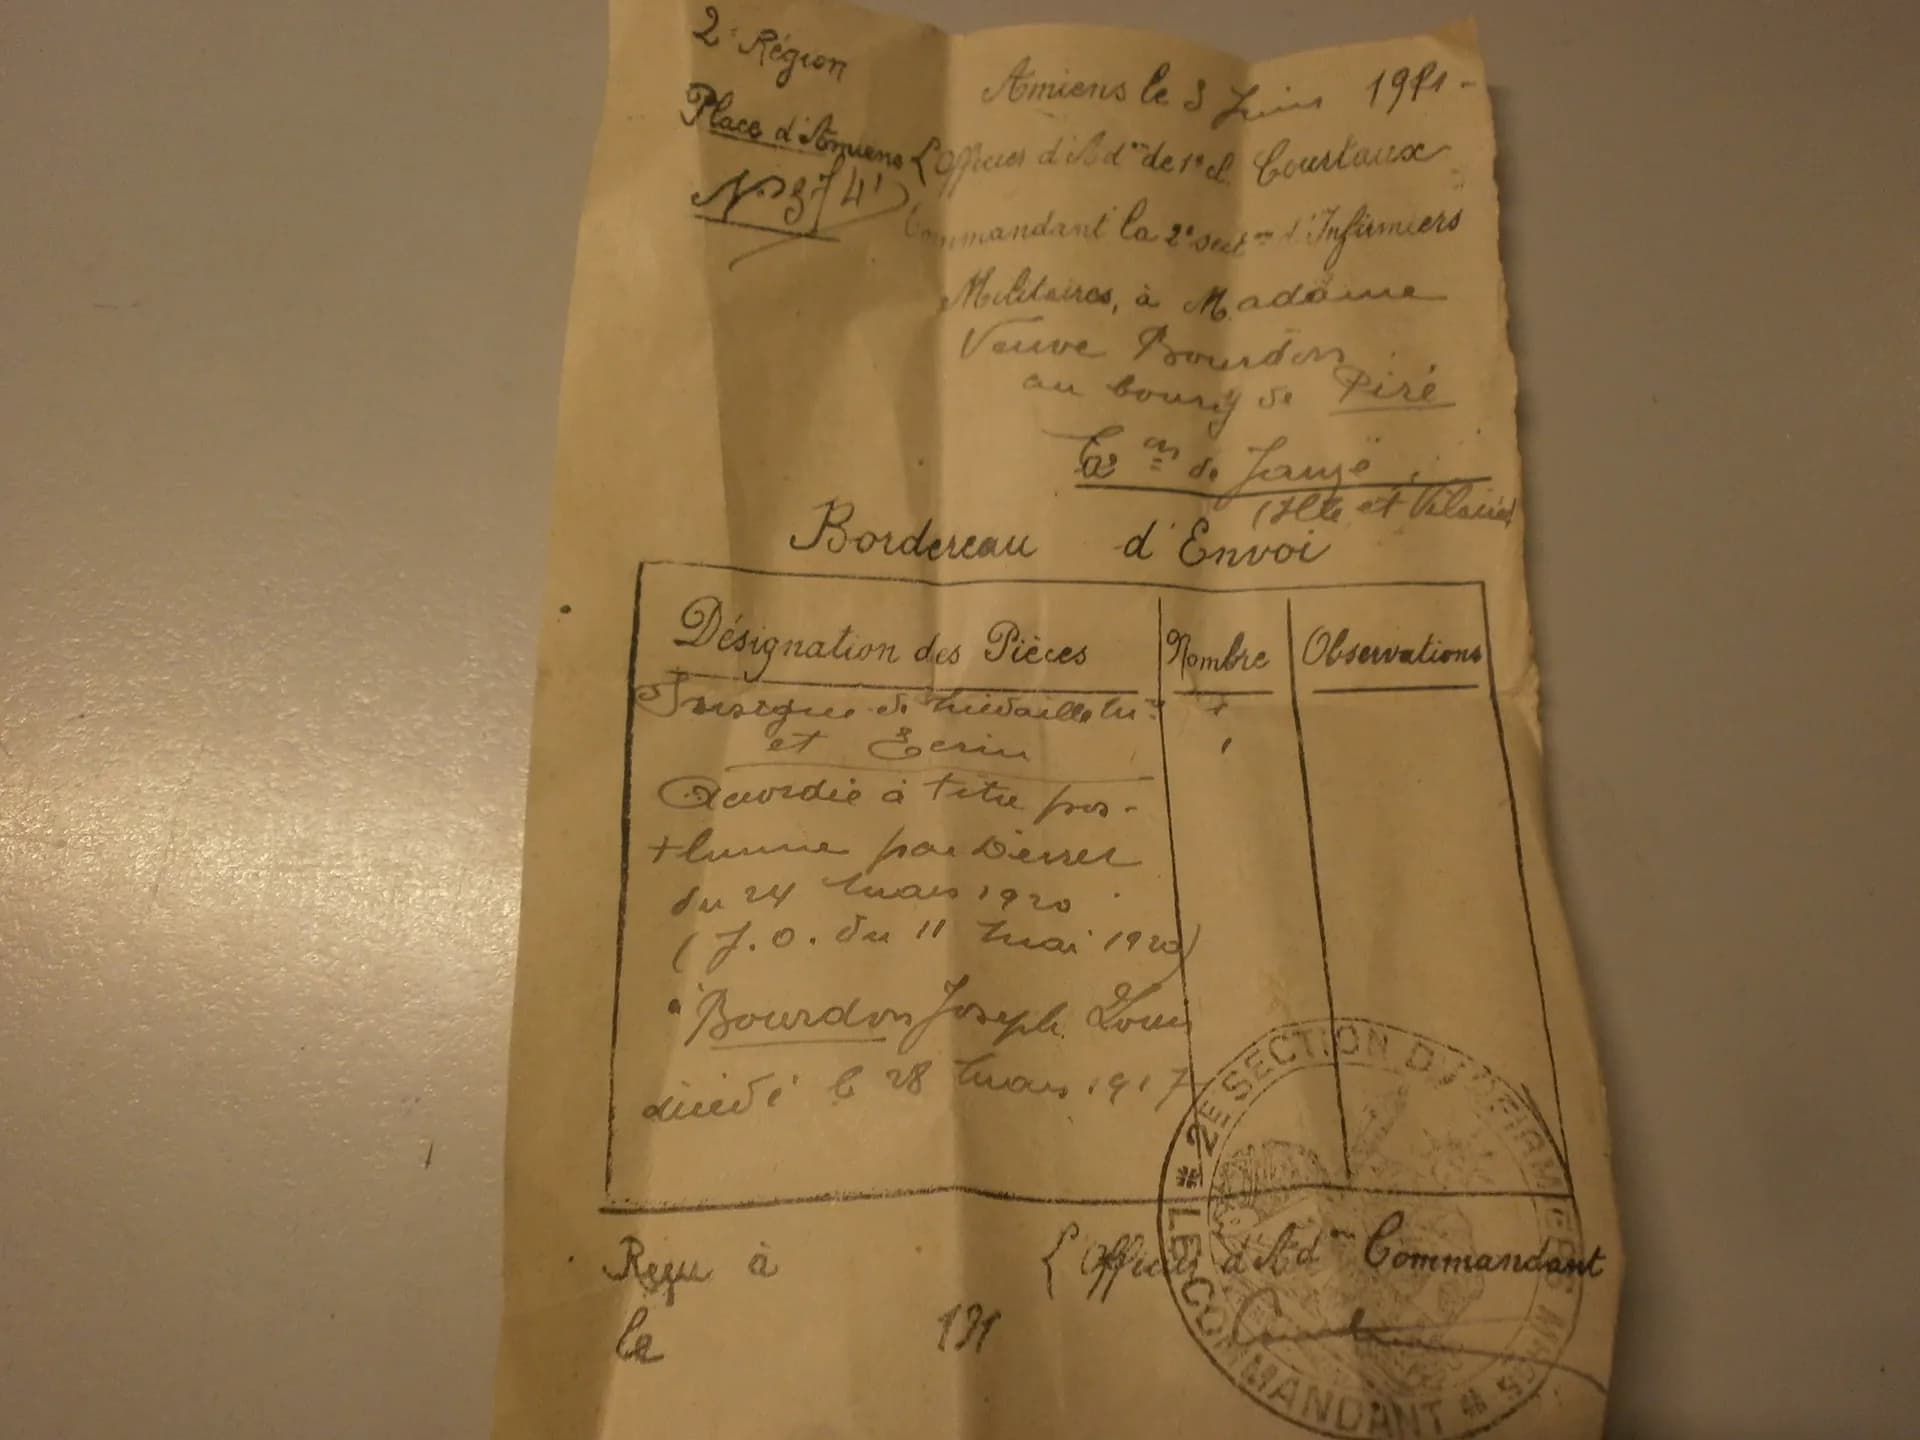 2e Région
Place d'Amiens
No 3741
Amiens le 3 Juin 1921
L'Officier d'Adon de 1e cl. Courtaux
Commandant la 2e secton d'Infirmiers
Militaires, à Madame
Veuve Bourdon
au bourg de Piré
Con de Janzé
(Ille et Vilaine)
Bordereau d'Envoi
Désignation des Pièces Nombre Observations
Insigne de Médaille Mre 1
et Ecrin 1
Accordée à titre pos-
thume par Décret
du 24 Mars 1920
(J.O. du 11 Mai 1920)
à Bourdon Joseph Louis
décédé le 28 Mars 1917
Reçu à
le 191
L'Officier d'Adon Commandant
* 2E SECTION D'INFIRMIERS MRES * LE COMMANDANT